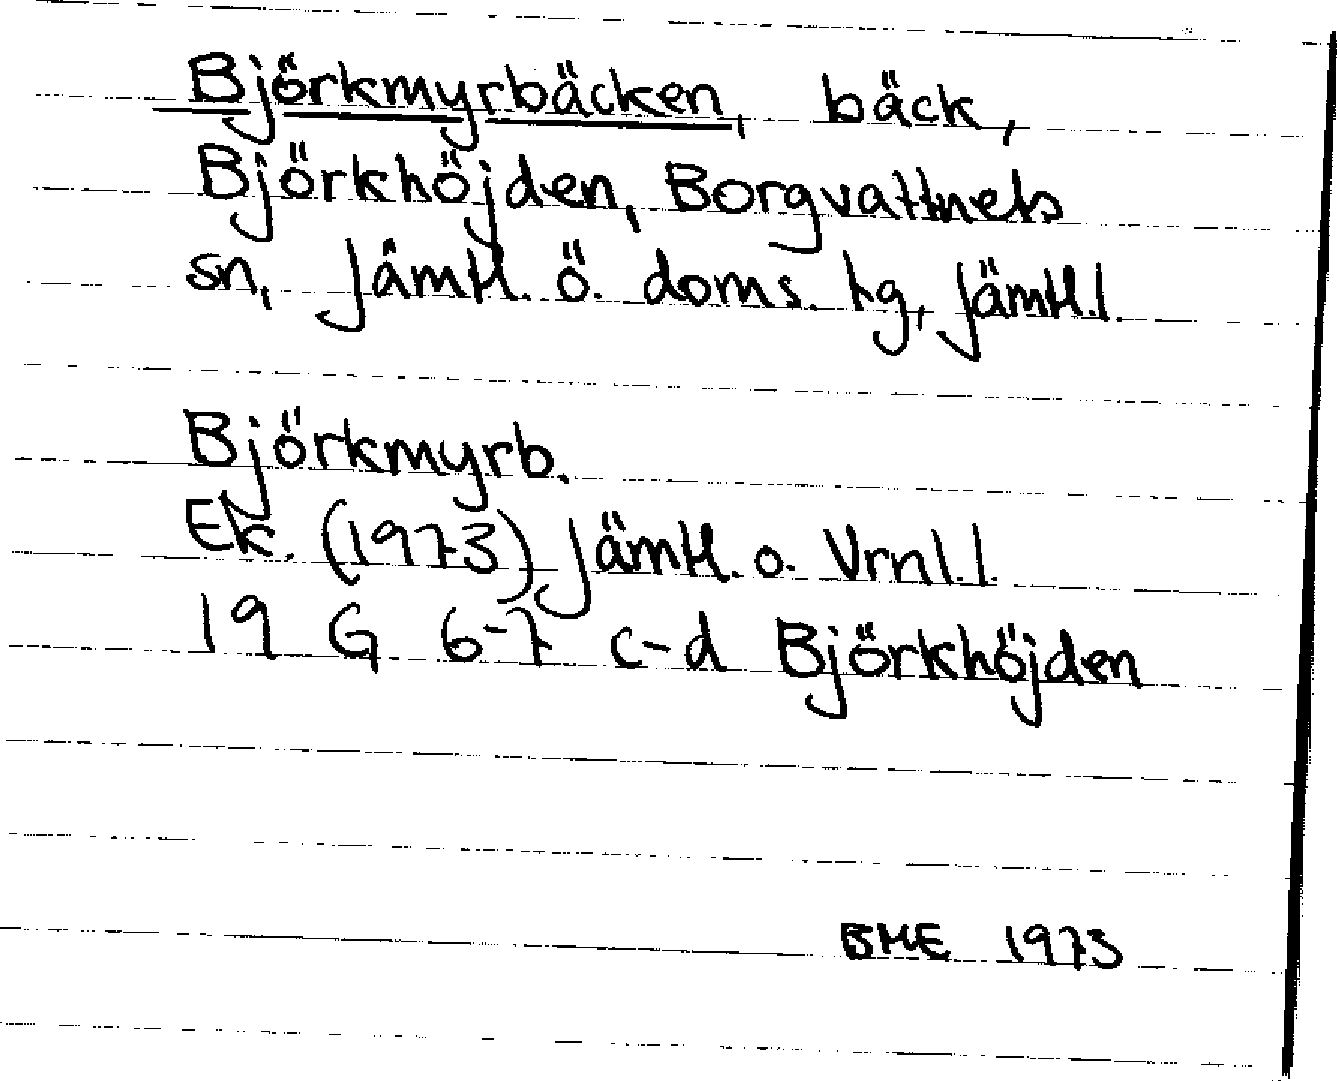 Björkmyrbäcken, bäck,
Björkhöjden, Borgvattnets
sn, Jämtl. ö. doms. hg, Jämtl.l.
Björkmyrb.
Ek. (1973) Jämtl. o. Vrnl.l.
19 G 6-7 c-d Björkhöjden
BME 1973